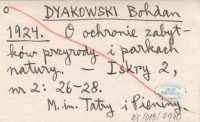 DYAKOWSKI Bohdan
1924. O ochronie zabyt-
ków przyrody i parkach
natury. — Iskry 2,
nr 2: 26-28.
M. in. Tatry i Pieniny.